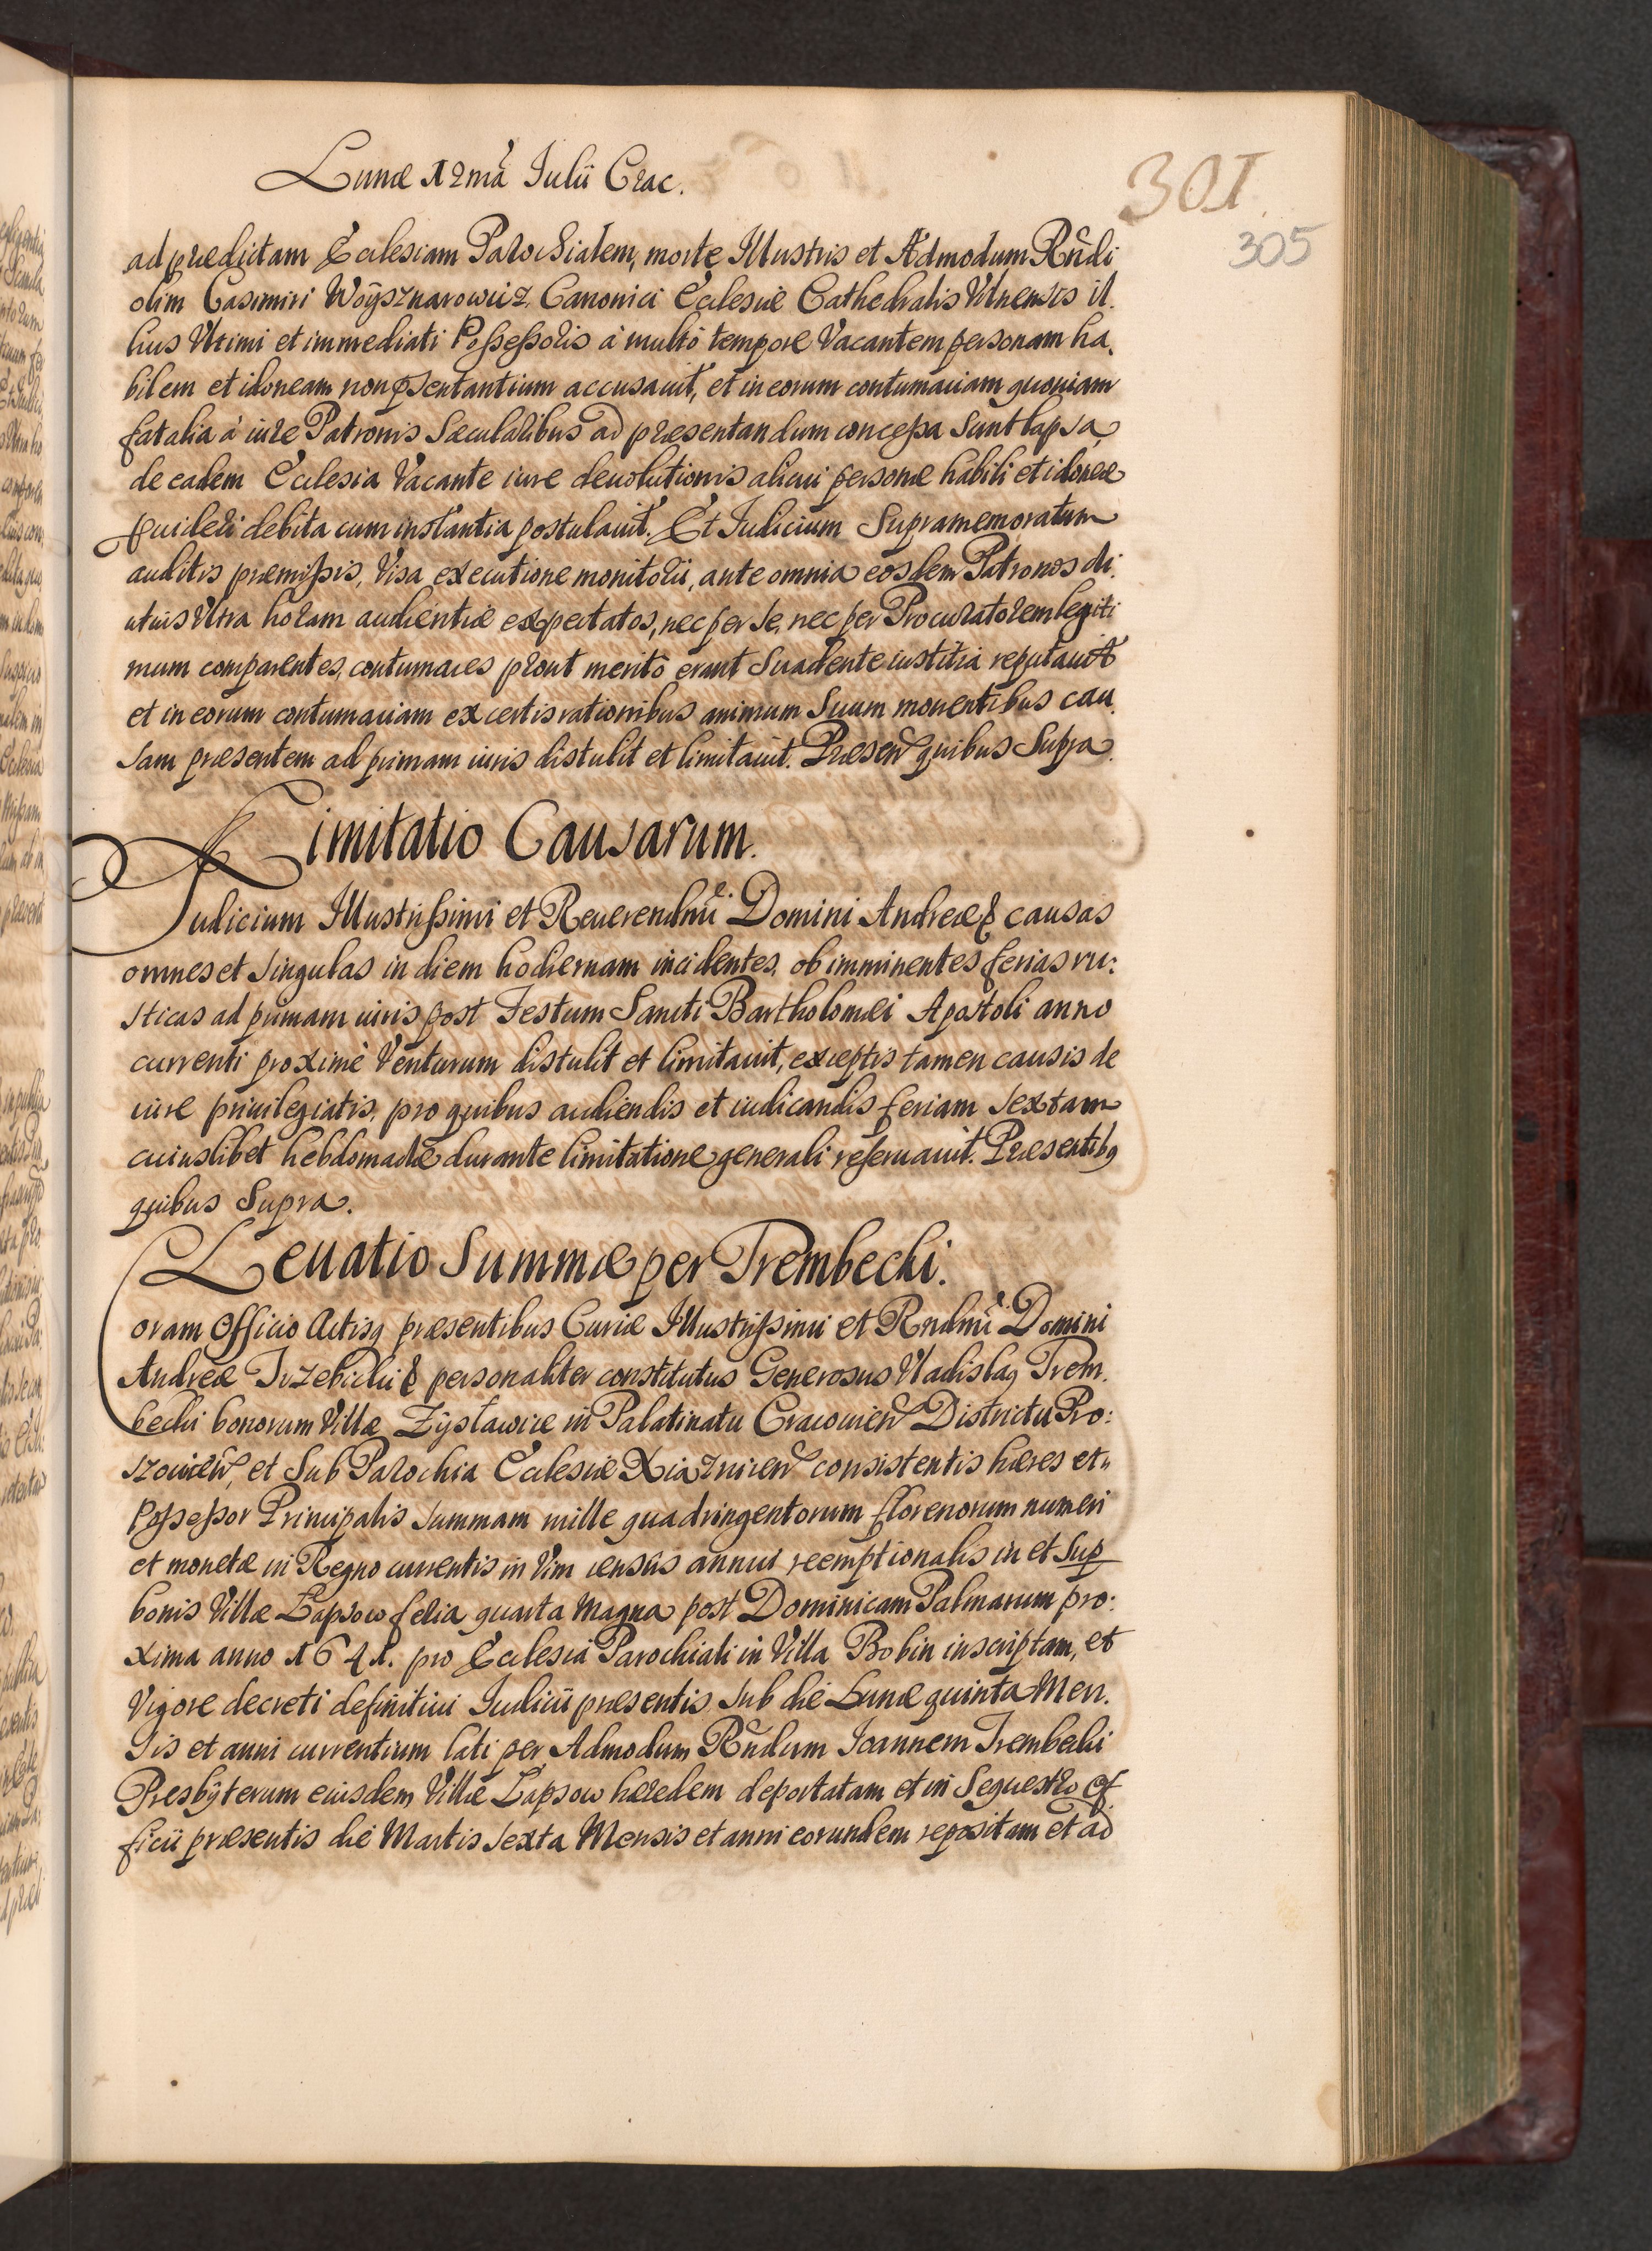 Lunæ 12mâ Iulii Crac.
301
305
ad prædictam Ecclesiam Parochialem, morte Illustris et Admodum Rñdi
olim Casimiri Woÿsznarowicz, Canonici Ecclesiæ Cathedralis Vilnensis il-
lius Vltimi et immediati Possessoris à multo tempore Vacantem personam ha-
bilem et idoneam non pñtantium accusauit, et in eorum contumaciam quoniam
fatalia à iure Patronis Sæcularibus ad præsentandum concessa Sunt lapsa,
de eadem Ecclesia Vacante iure deuolutionis alicui personæ habili et idoneæ
prouideri debita cum instantia postulauit. Et Iudicium Supramemoratum
auditis præmissis, Visa executione monitorii, ante omnia eosdem Patronos di-
utius Vltra horam audientiæ expectatos, nec per se, nec per Procuratorem legiti
mum comparentes, contumaces prout merito erant Suadente iustitia reputauit
et in eorum contumaciam ex certis rationibus animum Suum mouentibus cau-
sam præsentem ad primam iuris distulit et limitauit. Præsen quibus Supra.
Limitatio Causarum.
Iudicium Illustrissimi et Reuerendmi Domini Andreæ & causas
omnes et singulas in diem hodiernam incidentes, ob imminentes ferias ru:
sticas ad primam iuris post Festum Sancti Bartholomæi Apostoli anno
currenti proximè Venturum distulit et limitauit, exceptis tamen causis de
iure priuilegiatis, pro quibus audiendis et iudicandis feriam sextam
cuiuslibet hebdomadæ durante limitatione generali reseruauit. Præsentibq
quibus Supra.
Leuatio Summæ per Trembecki.
Coram Officio Actisq præsentibus Curiæ Illustrissimi et Rndmi Domini
Andreæ Trzebicki & personaliter constitutus Generosus Vladislaq Trem-
becki bonorum Villæ Zÿsławice in Palatinatu Cracouien Districtu Pro:
szouicen, et Sub Parochia Ecclesiæ Xiąznicen consistentis hæres et
Possessor Principalis summam mille quadringentorum florenorum numeri
et monetæ in Regno currentis in Vim census annui reemptionalis in et Sup
bonis Villæ Łapszow feria quarta Magna post Dominicam Palmarum pro:
xima anno 1641. pro Ecclesia Parochiali in Villa Bobin inscriptam, et
Vigore decreti definitiui Iudicii præsentis sub die Lunæ quinta Men-
sis et anni currentium lati per Admodum Rñdum Ioannem Trembecki
Presbÿterum eiusdem Villæ Łapsow hæredem deportatam et in Sequestro Of
ficii præsentis die Martis sexta Mensis et anni eorundem repositam et ad